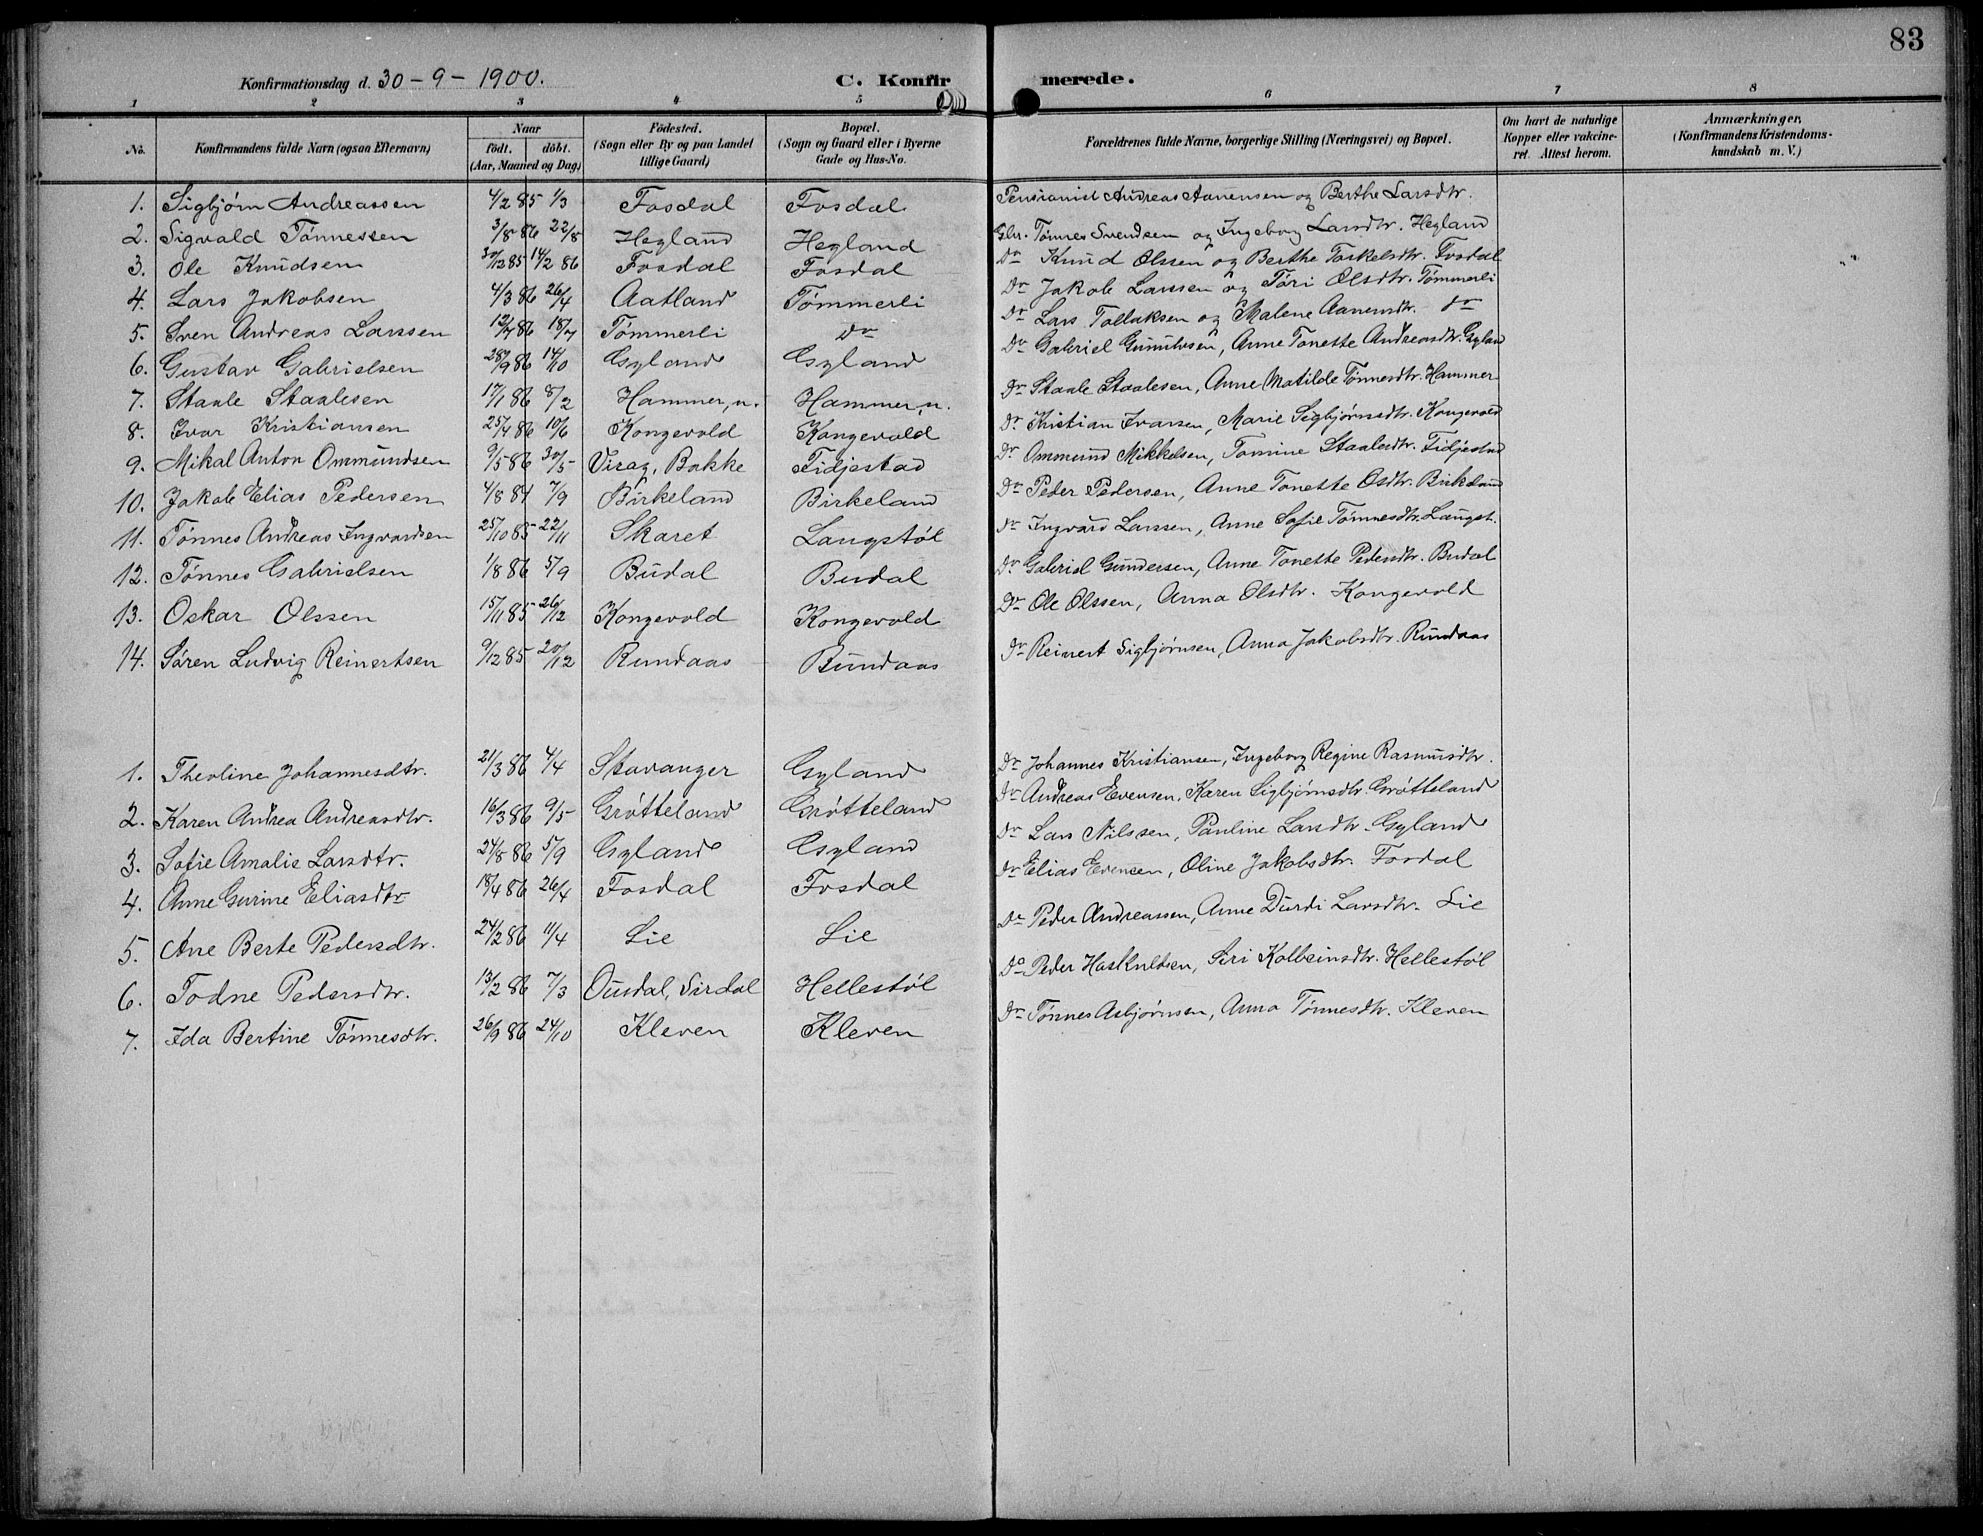 83
Konfirmationsdag d. 30 - 9 - 1900. C. Konfirmerede.
1 2 3 4 5 6 7 8
No. Konfirmandens fulde Navn (ogsaa Efternavn) Naar født. døbt. (Aar, Maaned og Dag) Fødested. (Sogn eller By og paa Landet tillige Gaard) Bopæl. (Sogn og Gaard eller i Byerne Gade og Hus-No. Forældrenes fulde Navne, borgerlige Stilling (Næringsvei) og Bopæl. Om havt de naturlige Kopper eller vakcineret. Attest herom. Anmærkninger, (Konfirmandens Kristendomskundskab m. V.)
1. Sigbjørn Andreassen 4/2 85 1/3 Fosdal Fosdal Pensionist Andreas Aanensen og Berthe Larsdtr.
2. Sigvald Tønnessen 3/8 86 22/8 Hegland Hegland Gbr. Tønnes Svendsen og Ingeborg Larsdtr. Hegland
3. Ole Knudsen 30/12 85 14/2 86 Fosdal Fosdal Do Knud Olssen og Berthe Torkelsdtr. Fosdal
4. Lars Jakobsen 4/3 86 26/4 Aatland Tømmerli Do Jakob Larssen og Tøri Olsdtr. Tømmerli
5. Sven Andreas Larssen 12/7 86 18/7 Tømmerli do Do Lars Tollaksen og Malene Aanensdtr. do
6. Gustav Gabrielsen 28/9 86 14/10 Gyland Gyland Do Gabriel Gunulvsen, Anne Tonette Andreasdtr. Gyland
7. Staale Staalesen 17/1 86 8/2 Hammer, n. Hammer, n. Do Staale Staalesen, Anne Matilde Tønnesdtr. Hammer
8. Ivar Kristiansen 25/4 86 10/6 Kongevold Kongevold Do Kristian Ivarsen, Marie Sigbjørnsdtr. Kongevold
9. Mikal Anton Ommundsen 9/5 86 30/5 Virag, Bakke Fidjestad Do Ommund Mikkelsen, Tomine Staalesdtr. Fidjestad
10. Jakob Elias Pedersen 4/8 84 7/9 Birkeland Birkeland Do Peder Pedersen, Anne Tonette Osdtr. Birkeland
11. Tønnes Andreas Ingvardsen 25/10 85 22/11 Skaret Langstøl Do Ingvard Larssen, Anne Sofie Tønnesdtr. Langst.
12. Tønnes Gabrielsen 1/8 86 5/9 Budal Budal Do Gabriel Gundersen, Anne Tonette Pedersdtr. Budal
13. Oskar Olssen 15/11 85 26/12 Kongevold Kongevold Do Ole Olssen, Anna Olsdtr. Kongevold
14. Søren Ludvig Reinertsen 9/12 85 20/12 Rundaas Rundaas Do Reinert Sigbjørnsen, Anna Jakobsdtr. Rundaas
1. Theoline Johannesdtr. 21/3 86 4/4 Stavanger Gyland Do Johannes Kristiansen, Ingeborg Regine Rasmusdtr.
2. Karen Andrea Andreasdtr. 16/3 86 9/5 Grøtteland Grøtteland Do Andreas Evensen, Karen Sigbjørnsdtr. Grøtteland
3. Sofie Amalie Larsdtr. 24/8 86 5/9 Gyland Gyland Do Lars Nilssen, Pauline Larsdtr. Gyland
4. Anne Gurine Eliasdtr 18/4 86 26/4 Fosdal Fosdal Do Elias Evensen, Oline Jakobsdtr. Fosdal
5. Ane Berte Pedersdtr. 24/2 86 11/4 Lie Lie Do Peder Andreassen, Anne Durdi Larsdtr. Lie
6. Todne Pedersdtr. 13/2 86 7/3 Ousdal, Sirdal Hellestøl Do Peder Haskuldsen, Siri Kolbeinsdtr. Hellestøl
7. Ida Bertine Tønnesdtr. 26/9 86 24/10 Kleven Kleven Do Tønnes Asbjørnsen, Anna Tønnesdtr. Kleven